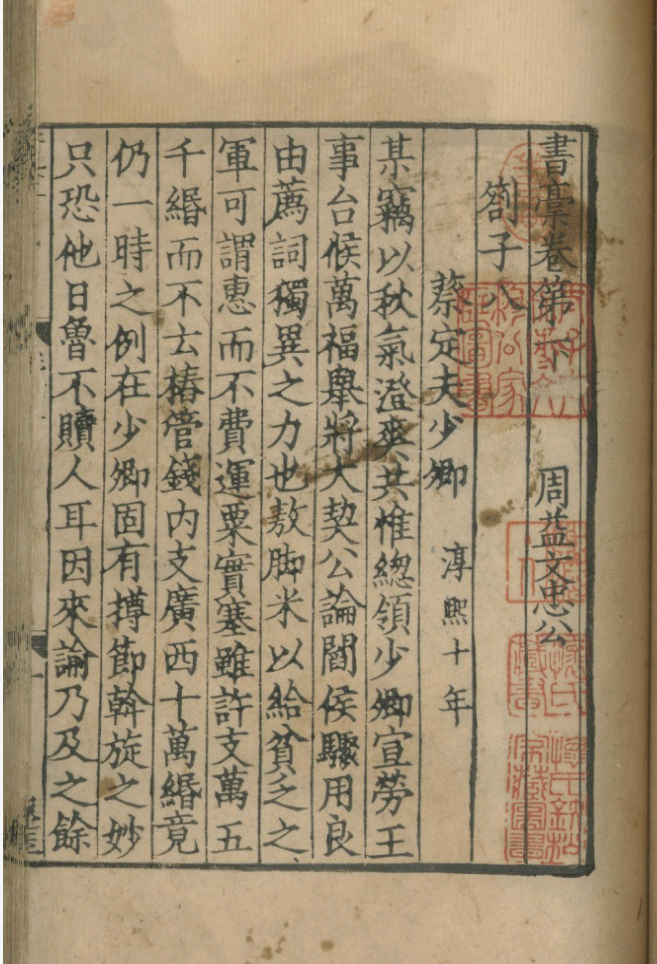 書稾卷第十 周益文忠公
劄子八
蔡定夫少卿 淳熙十年
某竊以秋氣澄爽共惟總領少卿宣勞王
事台候萬福舉將大契公論閻侯驟用良
由薦詞獨異之力也敖脚米以給貧乏之
軍可謂惠而不費運粟實塞雖許支萬五
千緡而不云樁管錢内支廣西十萬緡竟
仍一時之例在少卿固有撙節斡旋之妙
只恐他日魯不贖人耳因來諭乃及之餘